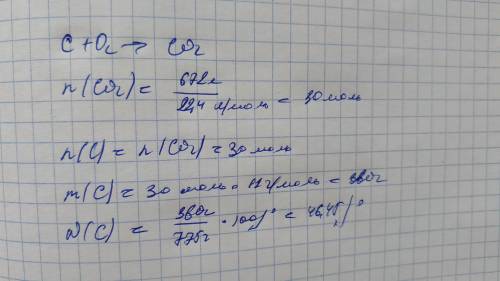 C + O₂ → CO₂
n(CO₂) = 672л / 22,4 л/моль = 30 моль
n(C) = n(CO₂) = 30 моль
m(C) = 30 моль · 12 г/моль = 360г
W(C) = 360г / 775г · 100% = 46,45%